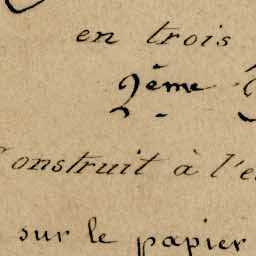 en trois
2ème
Construit à l'e
sur le papier